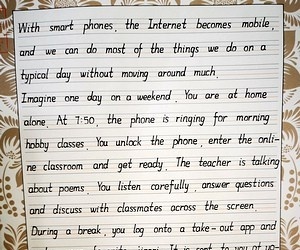 With smart phones, the Internet becomes mobile,
and we can do most of the things we do on a
typical day without moving around much.
Imagine one day on a weekend. You are at home
alone. At 7:50, the phone is ringing for morning
hobby classes. You unlock the phone, enter the onli-
ne classroom and get ready. The teacher is talking
about poems. You listen carefully, answer questions
and discuss with classmates across the screen.
During a break, you log onto a take-out app and
It is sent to you at up-